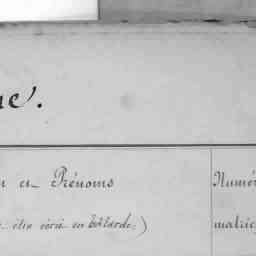 ne.
n et Prénoms
être écrit en bâtarde.)
Numér
matric